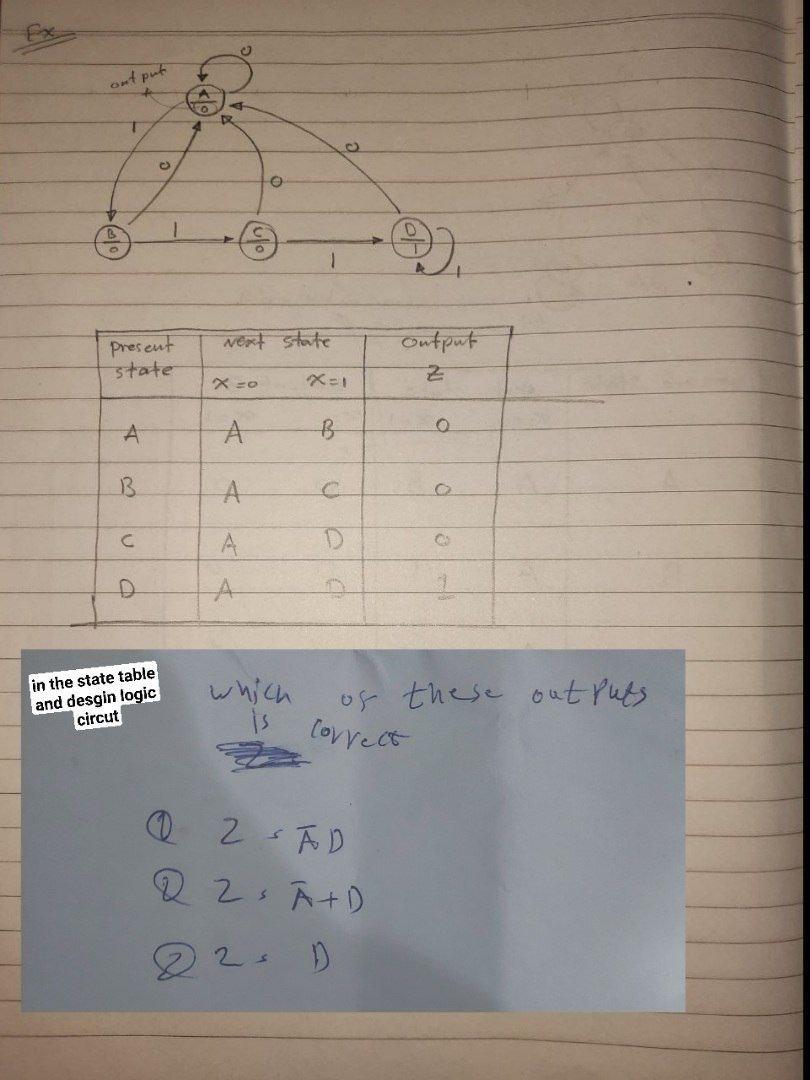 Ex
output
0
A
0
1
0
0
0
B
0
1
C
0
1
D
1
1
present state
Next state
output
x=0
x=1
Z
A A B 0
B A C 0
C A D 0
D A D 1
in the state table
and desgin logic
circut
which of these outputs
is correct
① Z = A̅D
② Z = A̅+D
② Z = D